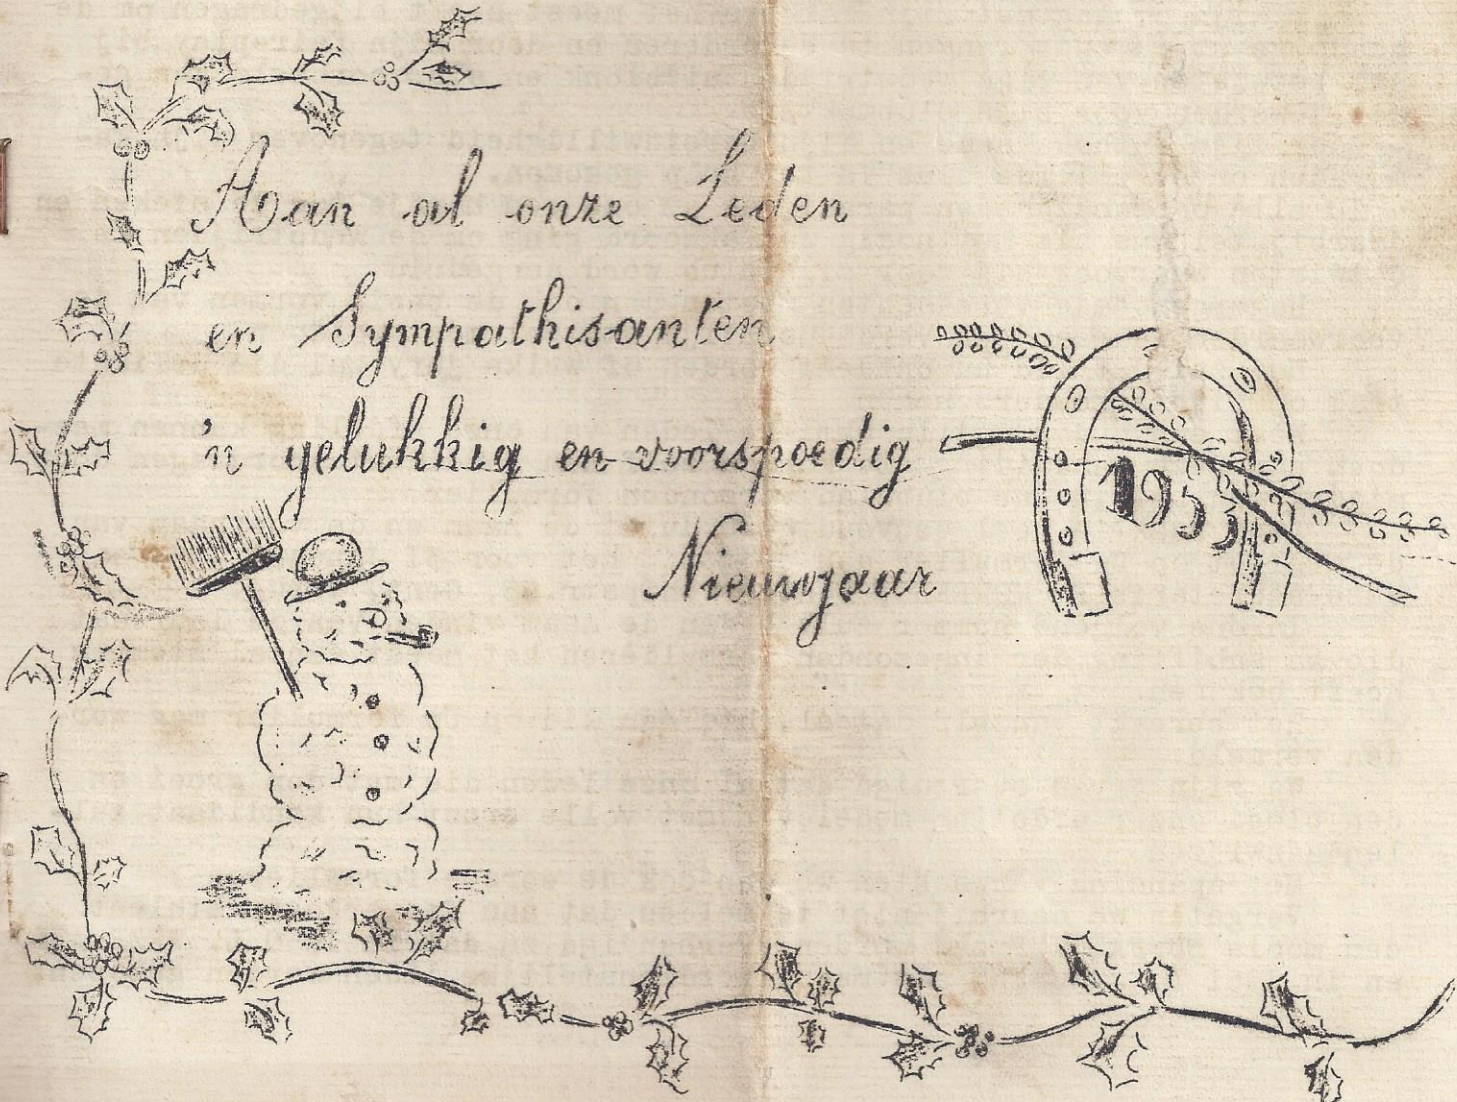 Aan al onze Leden
en Sympathisanten
'n gelukkig en voorspoedig
Nieuwjaar
1953